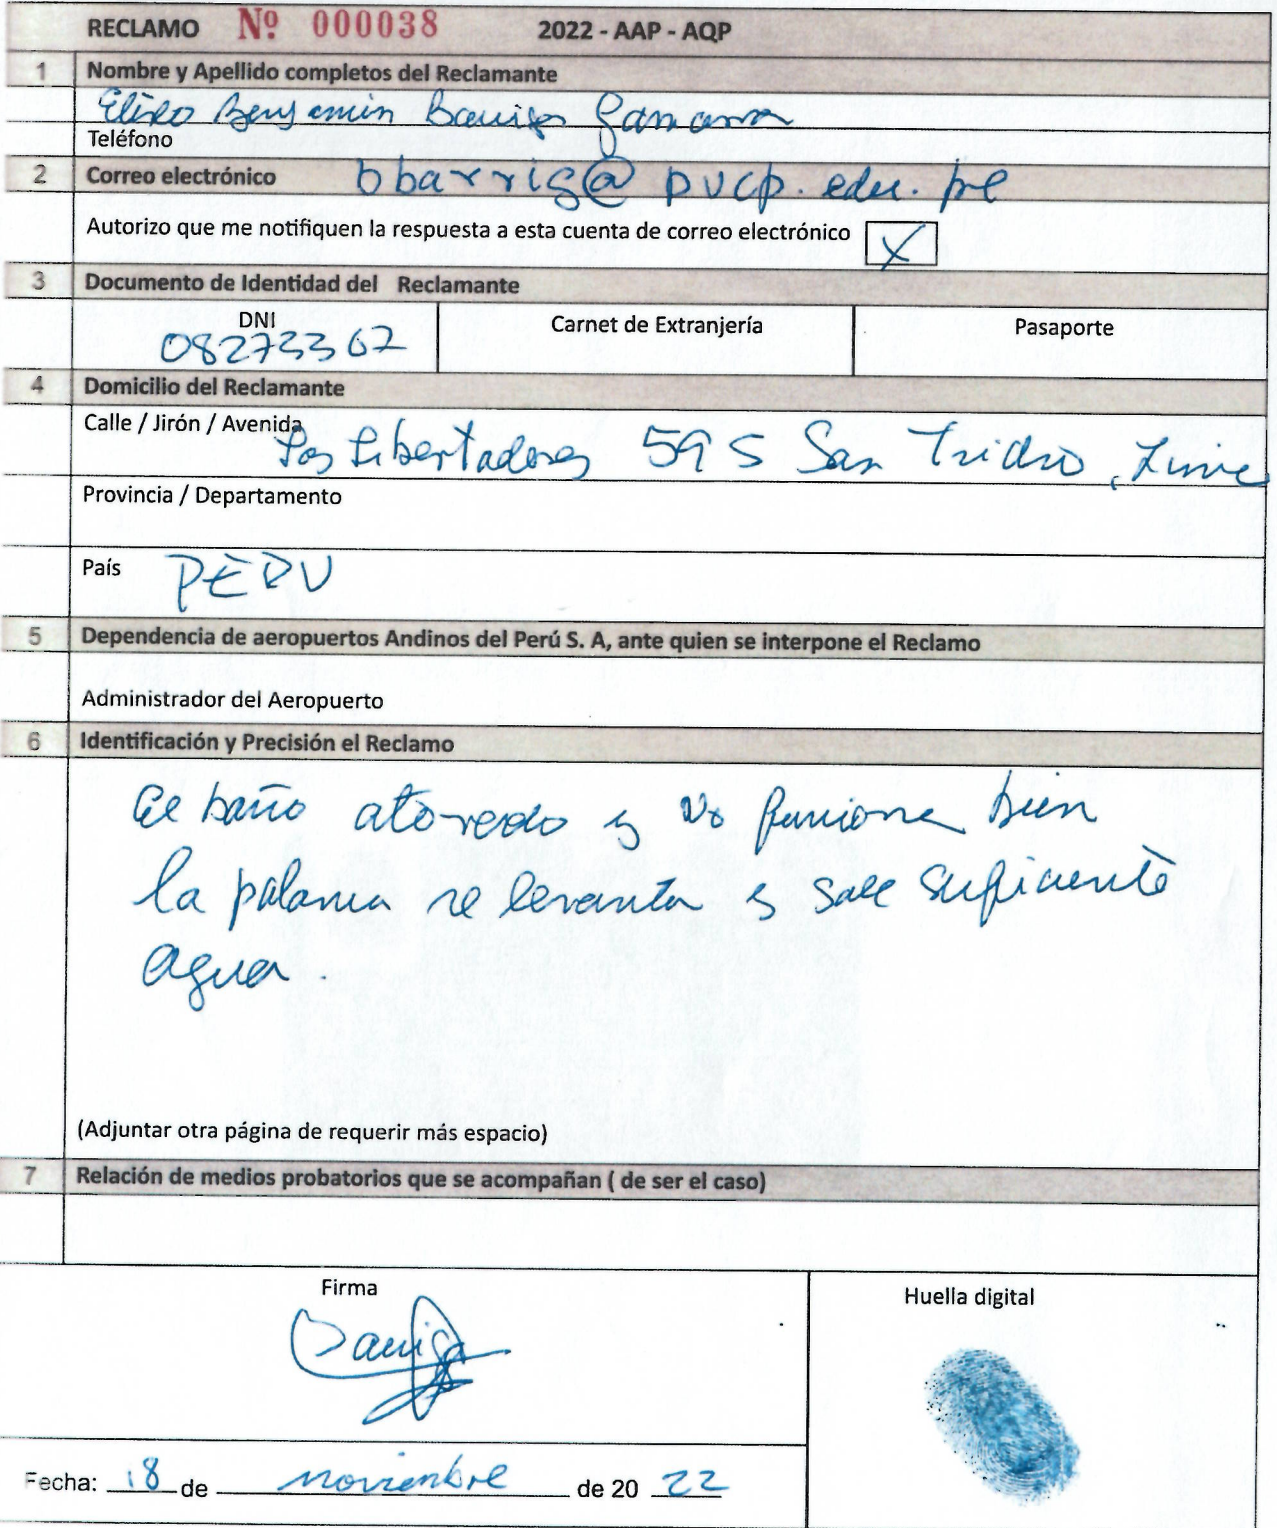 RECLAMO Nº 000038 2022 - AAP - AQP
1 Nombre y Apellido completos del Reclamante
Benjamin
Teléfono
2 Correo electrónico bbarrig@pucp.edu.pe
Autorizo que me notifiquen la respuesta a esta cuenta de correo electrónico X
3 Documento de Identidad del Reclamante
DNI Carnet de Extranjería Pasaporte
08273367
4 Domicilio del Reclamante
Calle / Jirón / Avenida Los Libertadores 595 San Isidro, Lima
Provincia / Departamento
País PERU
5 Dependencia de aeropuertos Andinos del Perú S. A, ante quien se interpone el Reclamo
Administrador del Aeropuerto
6 Identificación y Precisión el Reclamo
El baño atorado y no funciona bien
la palanca se levanta y sale suficiente
agua.
(Adjuntar otra página de requerir más espacio)
7 Relación de medios probatorios que se acompañan ( de ser el caso)
Firma Huella digital
Fecha: 18 de noviembre de 20 22